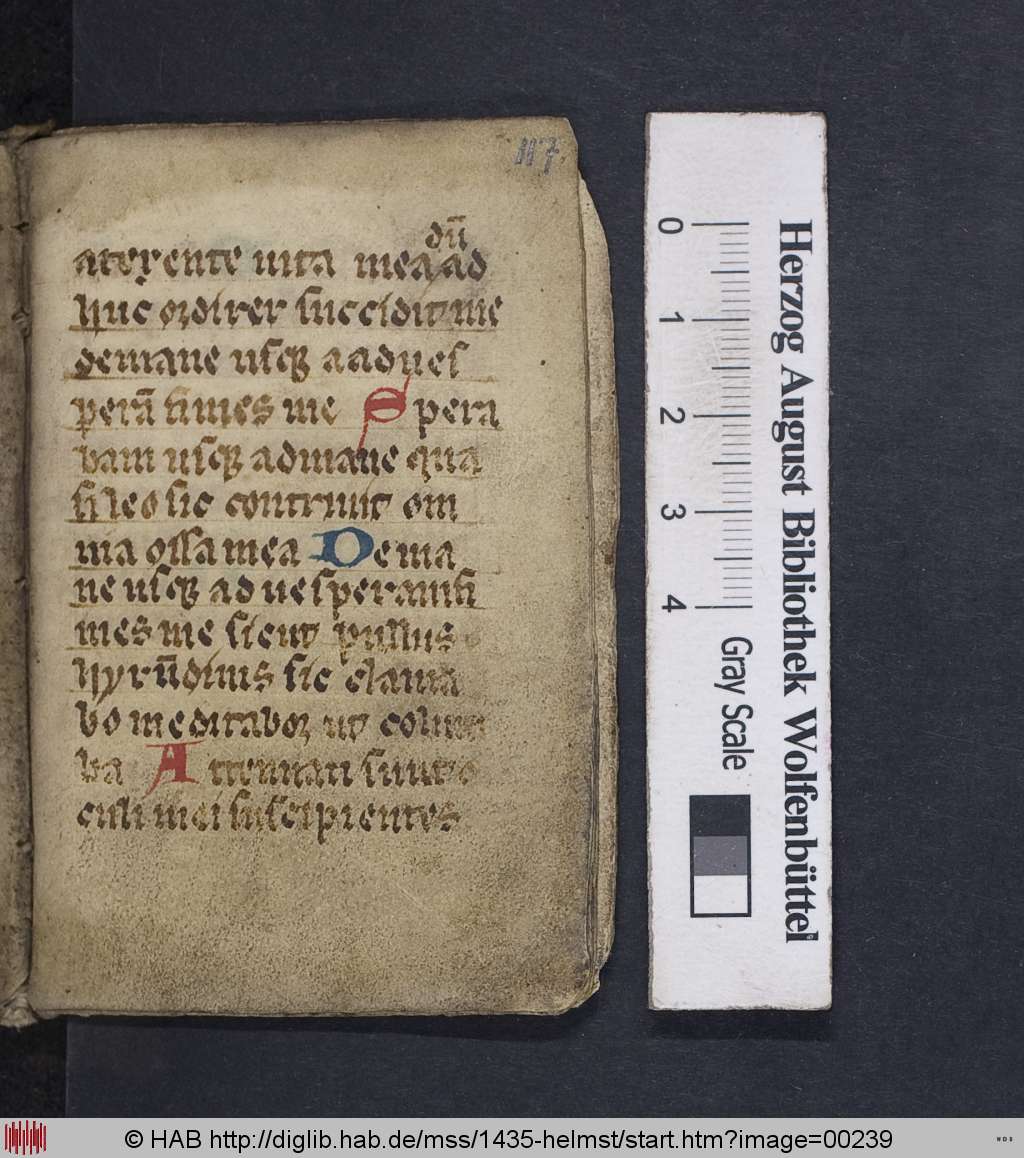 117.
atexente uita mea dū ad
huc ordirer succidit me
demane usq; aadues
perā finies me Spera
bam usq; admane qua
si leo sic contriuit om
nia ossa mea De ma
ne usq; ad uesperam fi
nies me sicut pullus
hyrūdinis sic clama
bo meditabor ut colum
ba Attenuati sunt o
culi mei suscipientes
0 1 2 3 4
Gray Scale
Herzog August Bibliothek Wolfenbüttel
© HAB http://diglib.hab.de/mss/1435-helmst/start.htm?image=00239